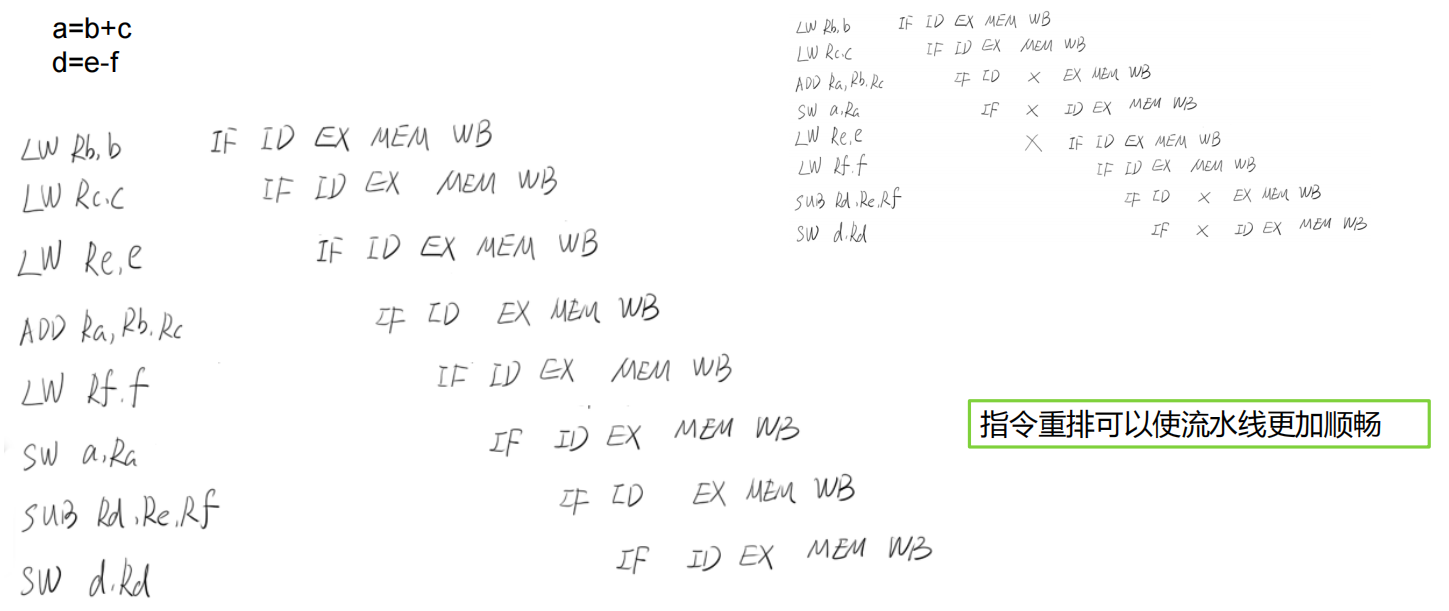 a=b+c
d=e-f
LW Rb,b IF ID EX MEM WB
LW Rc.c IF ID EX MEM WB
LW Re,e IF ID EX MEM WB
ADD Ra,Rb.Rc IF ID EX MEM WB
LW Rf.f IF ID EX MEM WB
SW a,Ra IF ID EX MEM WB
SUB Rd,Re,Rf IF ID EX MEM WB
SW d.Rd IF ID EX MEM WB
LW Rb,b IF ID EX MEM WB
LW Rc.c IF ID EX MEM WB
ADD Ra,Rb.Rc IF ID X EX MEM WB
SW a,Ra IF X ID EX MEM WB
LW Re,e X IF ID EX MEM WB
LW Rf.f IF ID EX MEM WB
SUB Rd,Re,Rf IF ID X EX MEM WB
SW d.Rd IF X ID EX MEM WB
指令重排可以使流水线更加顺畅